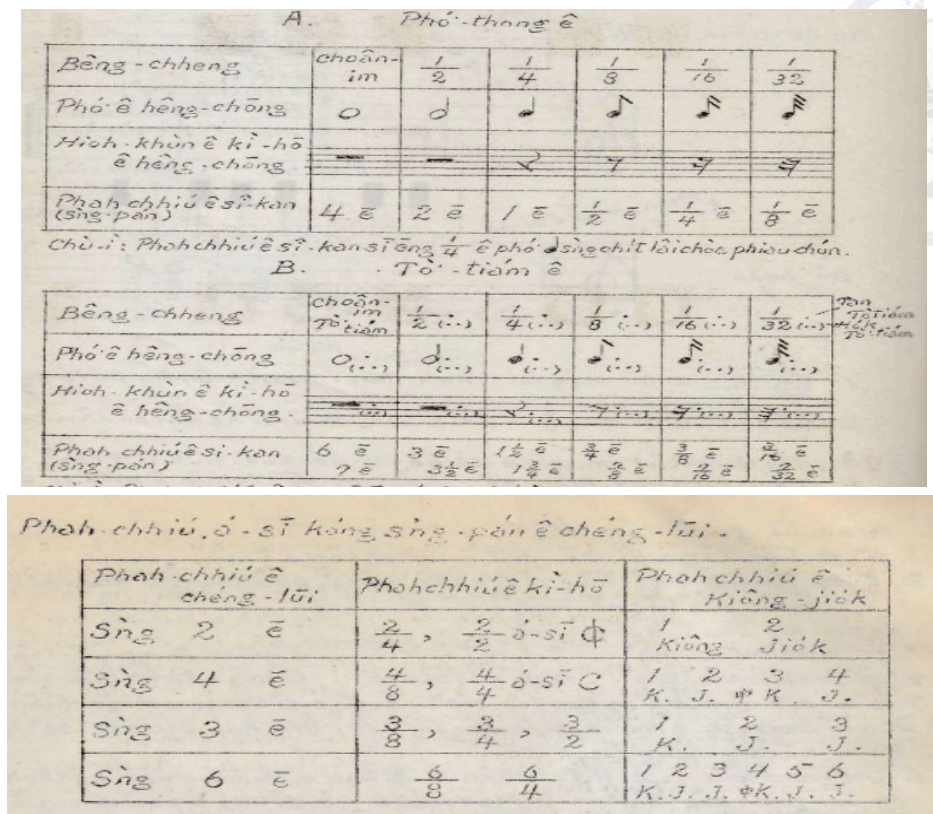 A. Phó͘-thong ê
Bêng-chheng choân-im 1/2 1/4 1/8 1/16 1/32
Phó͘ ê hêng-chōng
Hioh-khùn ê kì-hō
ê hêng-chōng
Phah chhiú ê sî-kan
(sǹg-pán) 4 ē 2 ē 1 ē 1/2 ē 1/4 ē 1/8 ē
Chù-ì: Phah chhiú ê sî-kan sī ēng 1/4 ê phó͘ sǹg chit lâi chòe phiau-chún.
B. Tò͘-tiám ê
Bêng-chheng choân-im Tò͘ tiám 1/2 (..) 1/4 (..) 1/8 (..) 1/16 (..) 1/32 (..) Tan Tò͘ tiám
Tò͘-tiám
Phó͘ ê hêng-chōng (..) (..) (..) (..) (..) (..)
Hioh-khùn ê kì-hō
ê hêng-chōng. (..) (..) (..) (..) (..) (..)
Phah chhiú ê sî-kan 6 ē 3 ē 1 1/2 ē 3/4 ē 3/8 ē 3/16 ē
(sǹg-pán) 7 ē 3 1/2 ē 1 3/4 ē
Phah-chhiú, á-sī kóng sǹg-pán ê chéng-lūi.
Phah-chhiú ê
chéng-lūi
Phah chhiú ê kì-hō
Phah chhiú ê
Kiông-jio̍k
Sǹg 2 ē 2/4, 2/2 á-sī ¢ 1 2
Kiông Jio̍k
Sǹg 4 ē 4/8, 4/4 á-sī C 1 2 3 4
K. J. 中K. J.
Sǹg 3 ē 3/8, 3/4, 3/2 1 2 3
K. J. J.
Sǹg 6 ē 6/8 6/4 1 2 3 4 5 6
K. J. J. 中K. J. J.